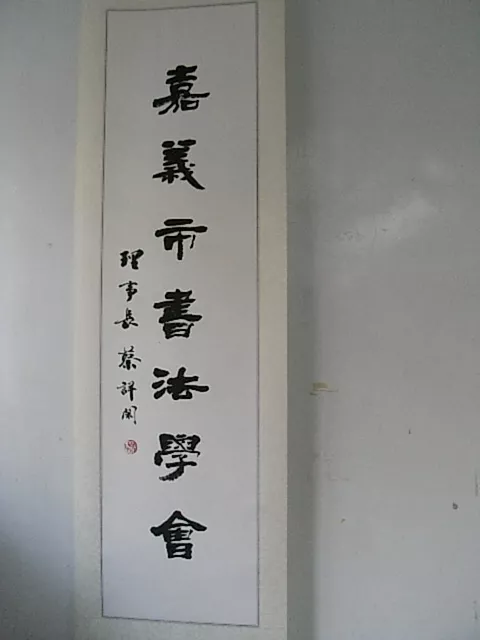 嘉義市書法學會
理事長 蔡詳閑